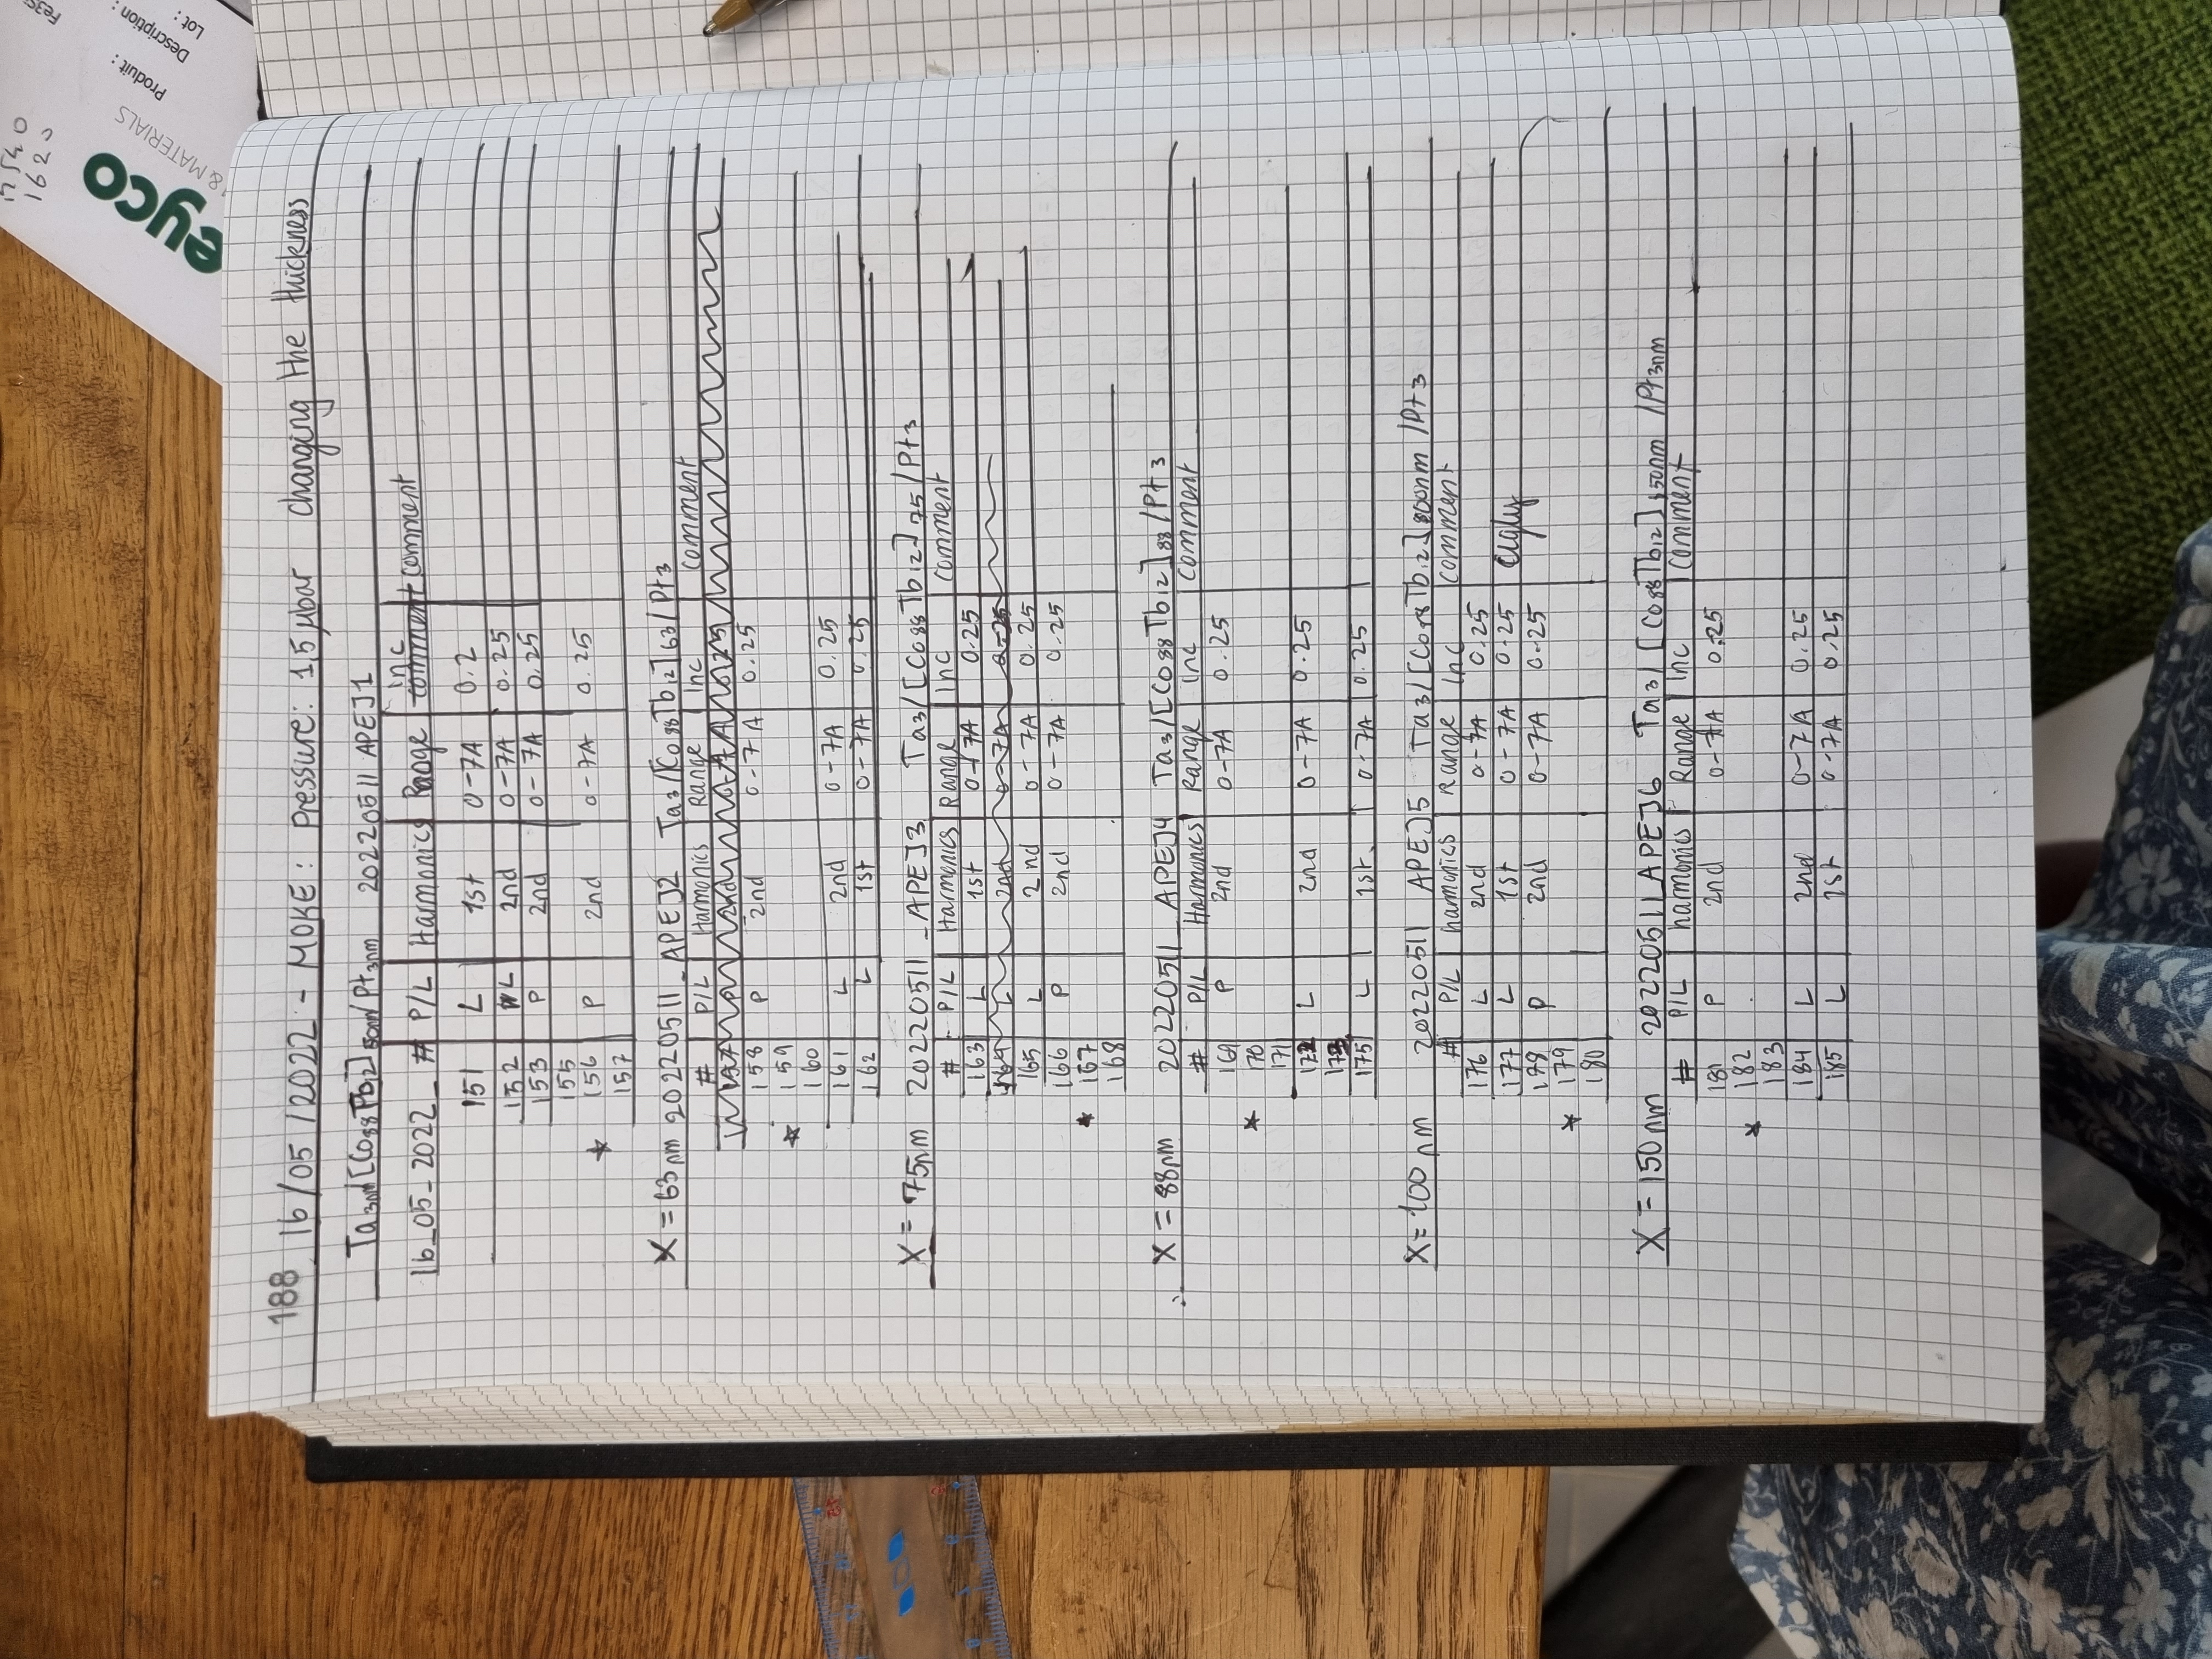 17540
162
Fe35
eyco
& MATERIALS
Produit :
Description :
Lot :
188 16/05/2022 - MOKE : Pressure: 1,5 µbar changing the thickness
Ta3nm/[Co88Tb12]50nm/Pt3nm 20220511 APEJ1
16_05_2022_ # P/L Harmonics Range inc comment comment
151 L 1st 0-7A 0.2
152 L 2nd 0-7A 0.25
153 P 2nd 0-7A 0.25
155
★ 156 P 2nd 0-7A 0.25
157
X = 63nm 20220511_APEJ2 Ta3/[Co88Tb12]63/Pt3
# P/L Harmonics Range Inc comment
157 P 2nd 0-7A 0.25
158 P 2nd 0-7A 0.25
★ 159
160
161 L 2nd 0-7A 0.25
162 L 1st 0-7A 0.25
X = 75nm 20220511_APEJ3 Ta3/[Co88Tb12]75/Pt3
# P/L Harmonics Range Inc comment
163 L 1st 0-7A 0.25
164 L 2nd 0-7A 0.25
165 L 2nd 0-7A 0.25
166 P 2nd 0-7A 0.25
★ 167
168
X = 88nm 20220511_APEJ4 Ta3/[Co88Tb12]88/Pt3
# P/L Harmonics Range Inc comment
169 P 2nd 0-7A 0.25
★ 170
171
172 L 2nd 0-7A 0.25
173
175 L 1st. 0-7A 0.25
X = 100nm 20220511 APEJ5 Ta3/[Co88Tb12]100nm/Pt3
# P/L harmonics Range Inc comment
176 L 2nd 0-7A 0.25
177 L 1st 0-7A 0.25 ugly
178 P 2nd 0-7A 0.25
★ 179
180
X = 150nm 20220511_APEJ6 Ta3/[Co88Tb12]150nm/Pt3nm
# P/L harmonics Range Inc comment
181 P 2nd 0-7A 0.25
★ 182
183
184 L 2nd 0-7A 0.25
185 L 1st 0-7A 0.25